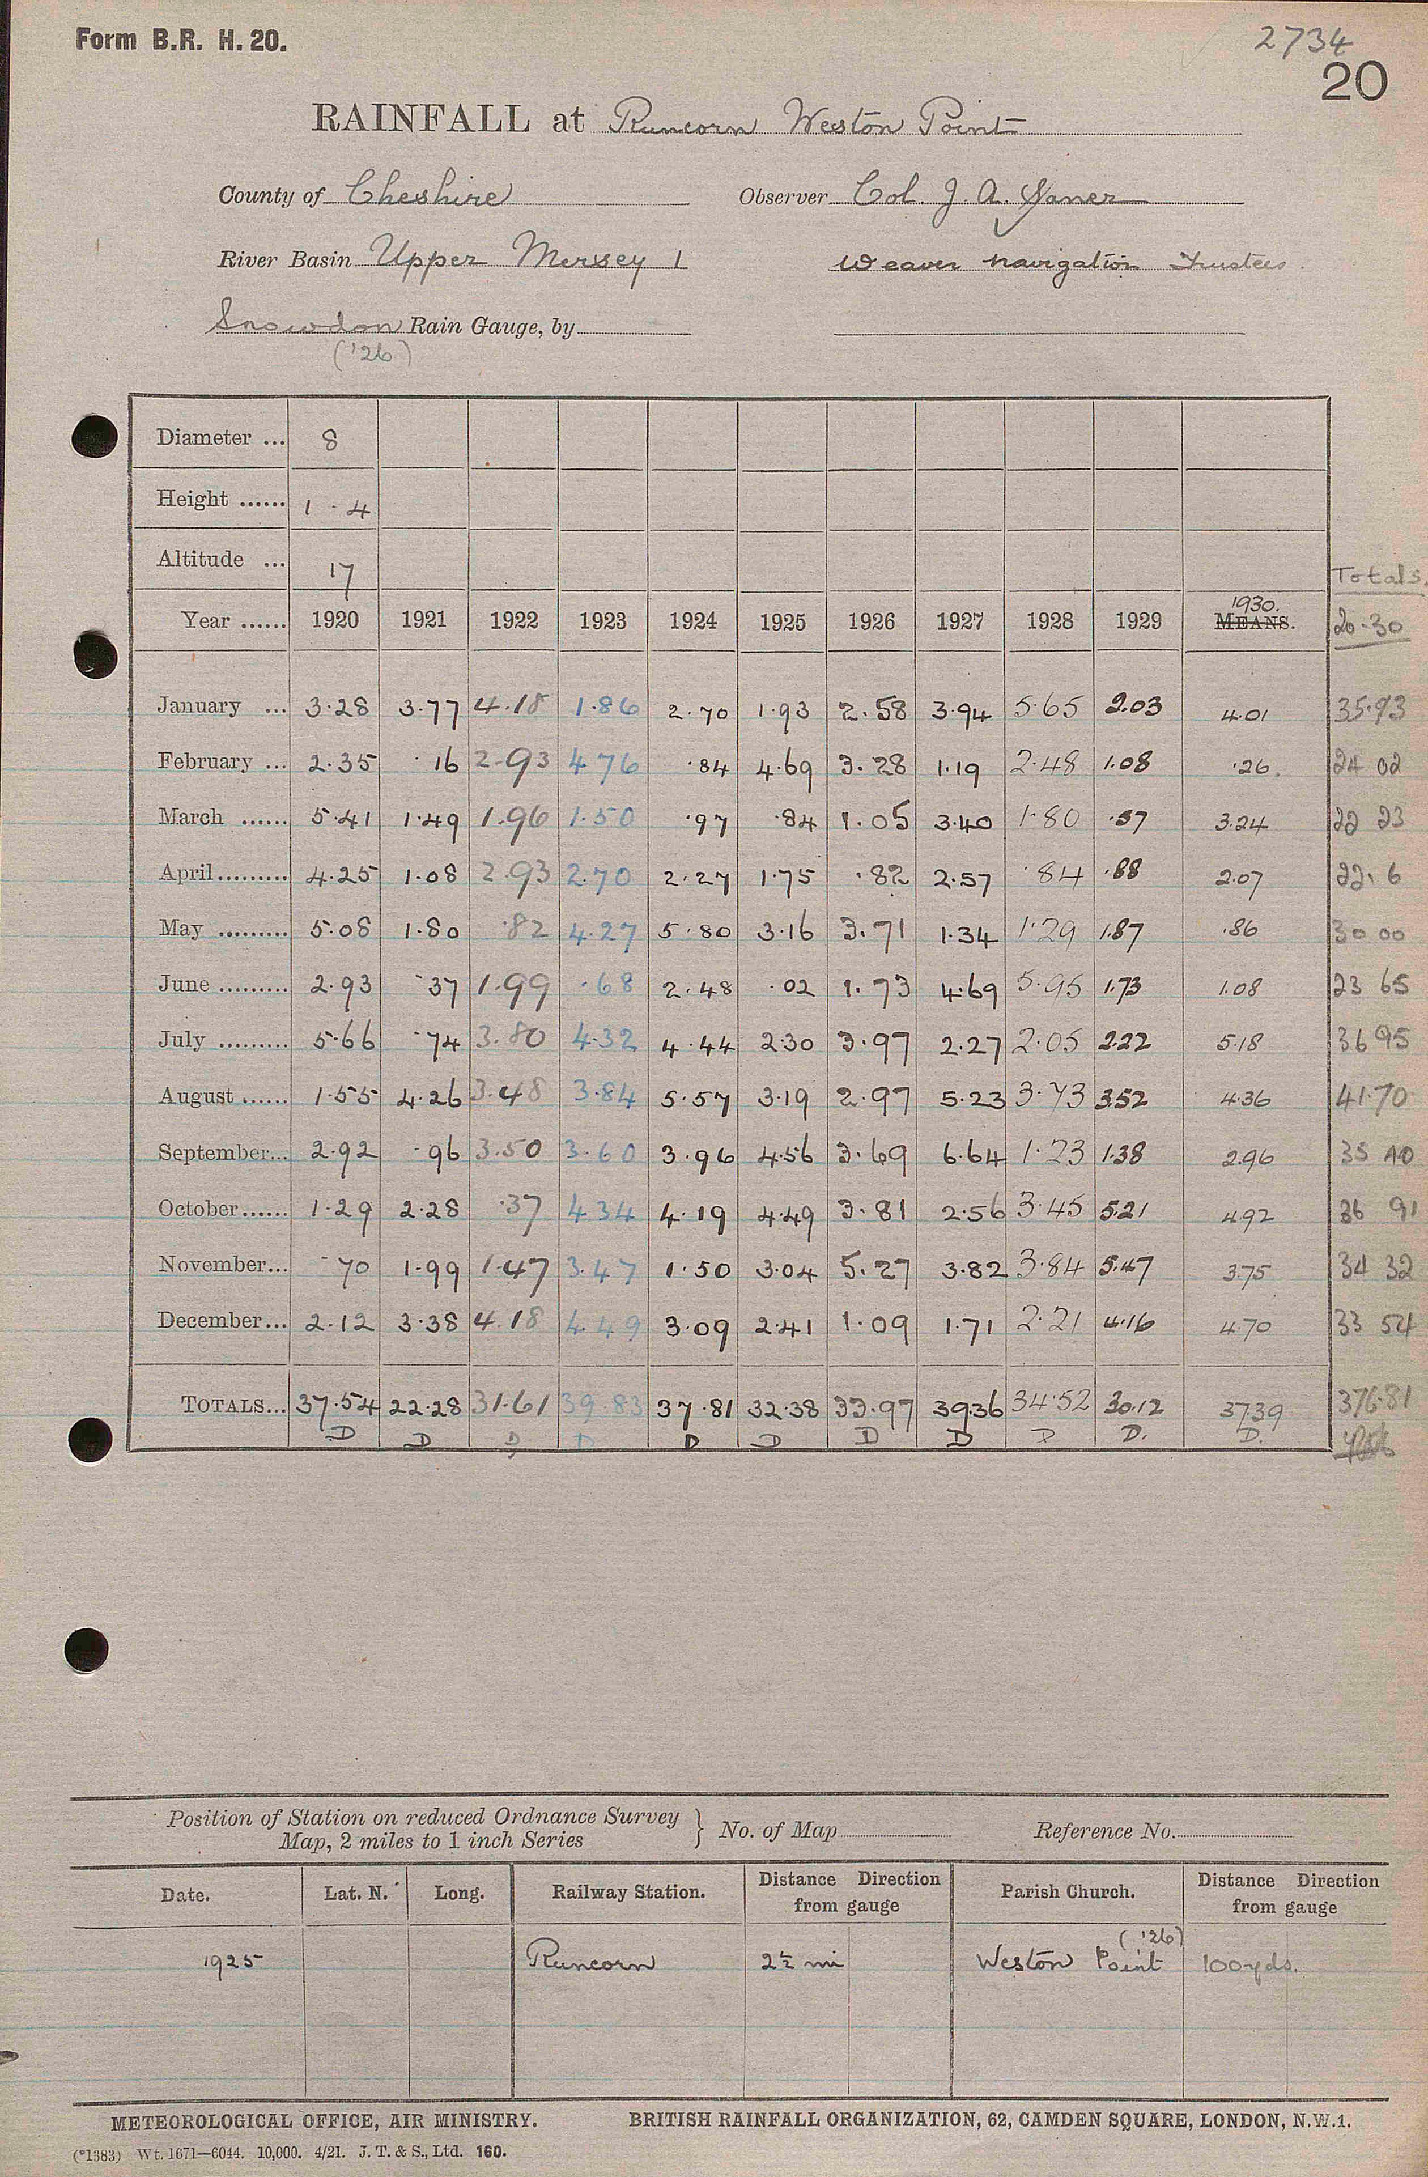 Form B.R. H. 20.
2734
20
RAINFALL at Runcorn Weston Point
County of Cheshire Observer Col. J. A. Saner
River Basin Upper Mersey 1 Weaver Navigation Trustees
Snowdon Rain Gauge, by
('26)
Diameter ... 8
Height ...... 1 · 4
Altitude ... 17
Totals
Year ...... 1920 1921 1922 1923 1924 1925 1926 1927 1928 1929 1930. MEANS. 20-30
January ... 3·28 3·77 4·18 1·86 2·70 1·93 2·58 3·94 5·65 2.03 4·01 35·93
February ... 2·35 ·16 2·93 4·76 ·84 4·69 3·28 1·19 2·48 1·08 ·26. 24 02
March ...... 5·41 1·49 1·96 1·50 ·97 ·84 1·05 3·40 1·80 ·57 3·24 22 23
April......... 4·25 1·08 2·93 2·70 2·27 1·75 ·82 2·57 ·84 ·88 2·07 22·16
May ......... 5·08 1·80 ·82 4·27 5·80 3·16 3·71 1·34 1·29 1·87 ·86 30 00
June ......... 2·93 ·37 1·99 ·68 2·48 ·02 1·73 4·69 5·95 1·73 1·08 23 65
July ......... 5·66 ·74 3·80 4·32 4·44 2·30 3·97 2·27 2·05 2·22 5·18 36 95
August ...... 1·55 4·26 3·48 3·84 5·57 3·19 2·97 5·23 3·73 3·52 4·36 41·70
September... 2·92 ·96 3·50 3·60 3·96 4·56 3·69 6·64 1·23 1·38 2·96 35 40
October...... 1·29 2·28 ·37 4·34 4·19 4·49 3·81 2·56 3·45 5·21 4·92 36 91
November... ·70 1·99 1·47 3·47 1·50 3·04 5·27 3·82 3·84 5·47 3·75 34 32
December... 2·12 3·38 4·18 4·49 3·09 2·41 1·09 1·71 2·21 4·16 4·70 33 54
TOTALS... 37·54 22·28 31·61 39·83 37·81 32·38 33·97 39·36 34·52 30·12 37·39 376·81
D D D D D D D D D D. D.
Position of Station on reduced Ordnance Survey
Map, 2 miles to 1 inch Series } No. of Map Reference No.
Date. Lat. N. Long. Railway Station. Distance Direction from gauge Parish Church. Distance Direction from gauge
('26)
1925 Runcorn 2½ mi Weston Point 100 yds.
METEOROLOGICAL OFFICE, AIR MINISTRY. BRITISH RAINFALL ORGANIZATION, 62, CAMDEN SQUARE, LONDON, N.W.1.
(*1383) Wt. 1671—6044. 10,000. 4/21. J. T. & S., Ltd. 160.